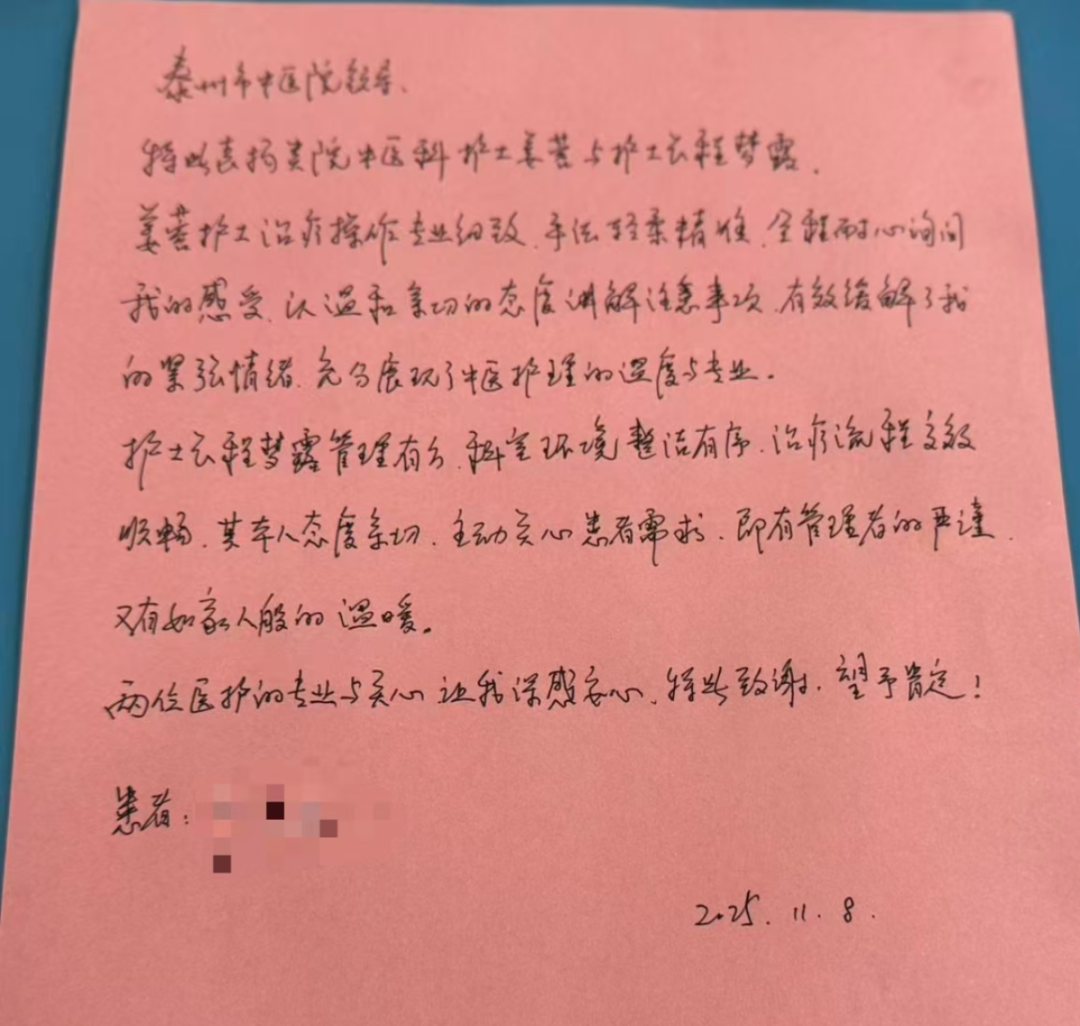 泰州市中医院领导、
特此表扬贵院中医科护士姜蕾与护士长程梦露.
姜蕾护士治疗操作专业细致、手法轻柔精准、全程耐心询问
我的感受、以温和亲切的态度讲解注意事项、有效缓解了我
的紧张情绪、充分展现了中医护理的温度与专业。
护士长程梦露管理有方、科室环境整洁有序、治疗流程高效
顺畅、其本人态度亲切、主动关心患者需求、即有管理者的严谨、
又有如家人般的温暖。
两位医护的专业与关心让我深感安心、特此致谢、望予肯定!
患者:
2025.11.8.